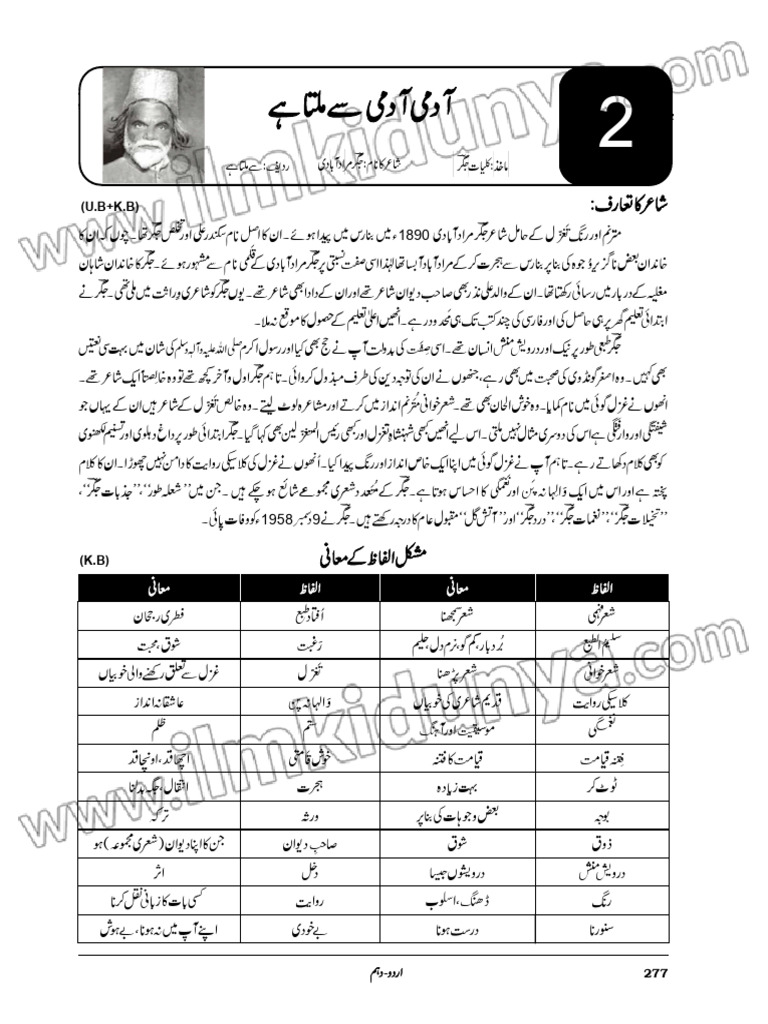 2
آدمی آدمی سے ملتا ہے
ماخذ: کلیات جگر شاعر کا نام: جگر مرادآبادی ردیف: سے ملتا ہے
شاعر کا تعارف: (U.B+K.B)
مترنم اور رنگِ تغزل کے حامل شاعر جگر مراد آبادی 1890ء میں بنارس میں پیدا ہوئے۔ ان کا اصل نام سکندر علی اور تخلص جگر تھا۔ چوں کہ ان کا
خاندان بعض ناگزیر وجوہ کی بنا پر بنارس سے ہجرت کر کے مراد آباد آ بسا تھا لہٰذا اسی صفت نسبتی پر جگر مراد آبادی کے قلمی نام سے مشہور ہوئے۔ جگر کا خاندان شاہان
مغلیہ کے دربار میں رسائی رکھتا تھا۔ ان کے والد علی نذر بھی صاحب دیوان شاعر تھے اور ان کے دادا بھی شاعر تھے۔ یوں جگر کو شاعری وراثت میں ملی تھی۔ جگر نے
ابتدائی تعلیم گھر پر ہی حاصل کی اور فارسی کی چند کتب تک ہی محدود رہے۔ انھیں اعلیٰ تعلیم کے حصول کا موقع نہ ملا۔
جگر طبعی طور پر نیک اور درویش منش انسان تھے۔ اسی صفت کی بدولت آپ نے حج بھی کیا اور رسول اکرم صلی اللہ علیہ وآلہ وسلم کی شان میں بہت سی نعتیں
بھی کہیں۔ وہ اصغر گونڈوی کی صحبت میں بھی رہے، جنھوں نے ان کی توجہ دین کی طرف مبذول کروائی۔ تاہم جگر اول و آخر کچھ تھے تو وہ خالصتاً ایک شاعر تھے۔
انھوں نے غزل گوئی میں نام کمایا۔ وہ خوش الحان بھی تھے۔ شعر خوانی مترنم انداز میں کرتے اور مشاعرہ لوٹ لیتے۔ وہ خالص تغزل کے شاعر ہیں ان کے یہاں جو
شیفتگی اور وارفتگی ہے اس کی دوسری مثال نہیں ملتی۔ اس لیے انھیں کبھی شہنشاہِ تغزل اور کبھی رئیس المتغزلین بھی کہا گیا۔ جگر ابتدائی طور پر داغ دہلوی اور تسنیم لکھنوی
کو بھی کلام دکھاتے رہے۔ تاہم آپ نے غزل گوئی میں اپنا ایک خاص انداز اور رنگ پیدا کیا۔ اُنھوں نے غزل کی کلاسیکی روایت کا دامن نہیں چھوڑا۔ ان کا کلام
پختہ ہے اور اس میں ایک والہانہ پن اور نغمگی کا احساس ہوتا ہے۔ جگر کے متعدد شعری مجموعے شائع ہو چکے ہیں۔ جن میں ’’شعلہ طور‘‘، ’’جذبات جگر‘‘،
’’تخیلات جگر‘‘، ’’نغمات جگر‘‘، ’’درد جگر‘‘ اور ’’آتش گل‘‘ مقبول عام کا درجہ رکھتے ہیں۔ جگر نے 9 دسمبر 1958ء کو وفات پائی۔
مشکل الفاظ کے معانی (K.B)
الفاظ معانی الفاظ معانی
شعر فہمی شعر سمجھنا اُفتادِ طبع فطری رجحان
سلیم الطبع بُردبار، کم گو، نرم دل، حلیم رغبت شوق، محبت
شعر خوانی شعر پڑھنا تغزل غزل سے تعلق رکھنے والی خوبیاں
کلاسیکی روایت قدیم شاعری کی خوبیاں والہانہ پن عاشقانہ انداز
نغمگی موسیقیت اور آہنگ ستم ظلم
فتنہ قیامت قیامت کا فتنہ خوش قامتی اچھا قد، اونچا قد
ٹوٹ کر بہت زیادہ ہجرت انتقال، جگہ بدلنا
بوجہ بعض وجوہات کی بنا پر ورثہ ترکہ
ذوق شوق صاحب دیوان جن کا اپنا دیوان (شعری مجموعہ) ہو
درویش منش درویشوں جیسا دخل اثر
رنگ ڈھنگ، اسلوب روایت کسی بات کا زبانی نقل کرنا
سنورنا درست ہونا بے خودی اپنے آپ میں نہ ہونا، بے ہوش
277 اردو-دہم
www.ilmkidunya.com
www.ilmkidunya.com